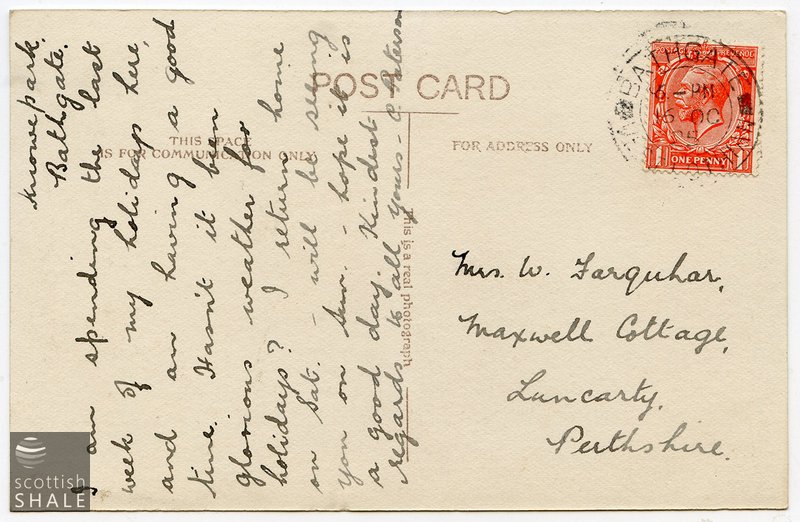 POST CARD
THIS SPACE
IS FOR COMMUNICATION ONLY
FOR ADDRESS ONLY
This is a real photograph
Knowepark,
Bathgate.
I am spending the last
week of my holidays here,
and am having a good
time. Hasn't it been
glorious weather for
holidays? I return home
on Sat. - will be seeing
you on Sun. - hope it is
a good day. Kindest
regards to all yours - C Paterson
Mrs. W. Farquhar,
Maxwell Cottage,
Luncarty,
Perthshire.
BATHGATE
6 - PM
OC
1 ONE PENNY 1
scottish
SHALE